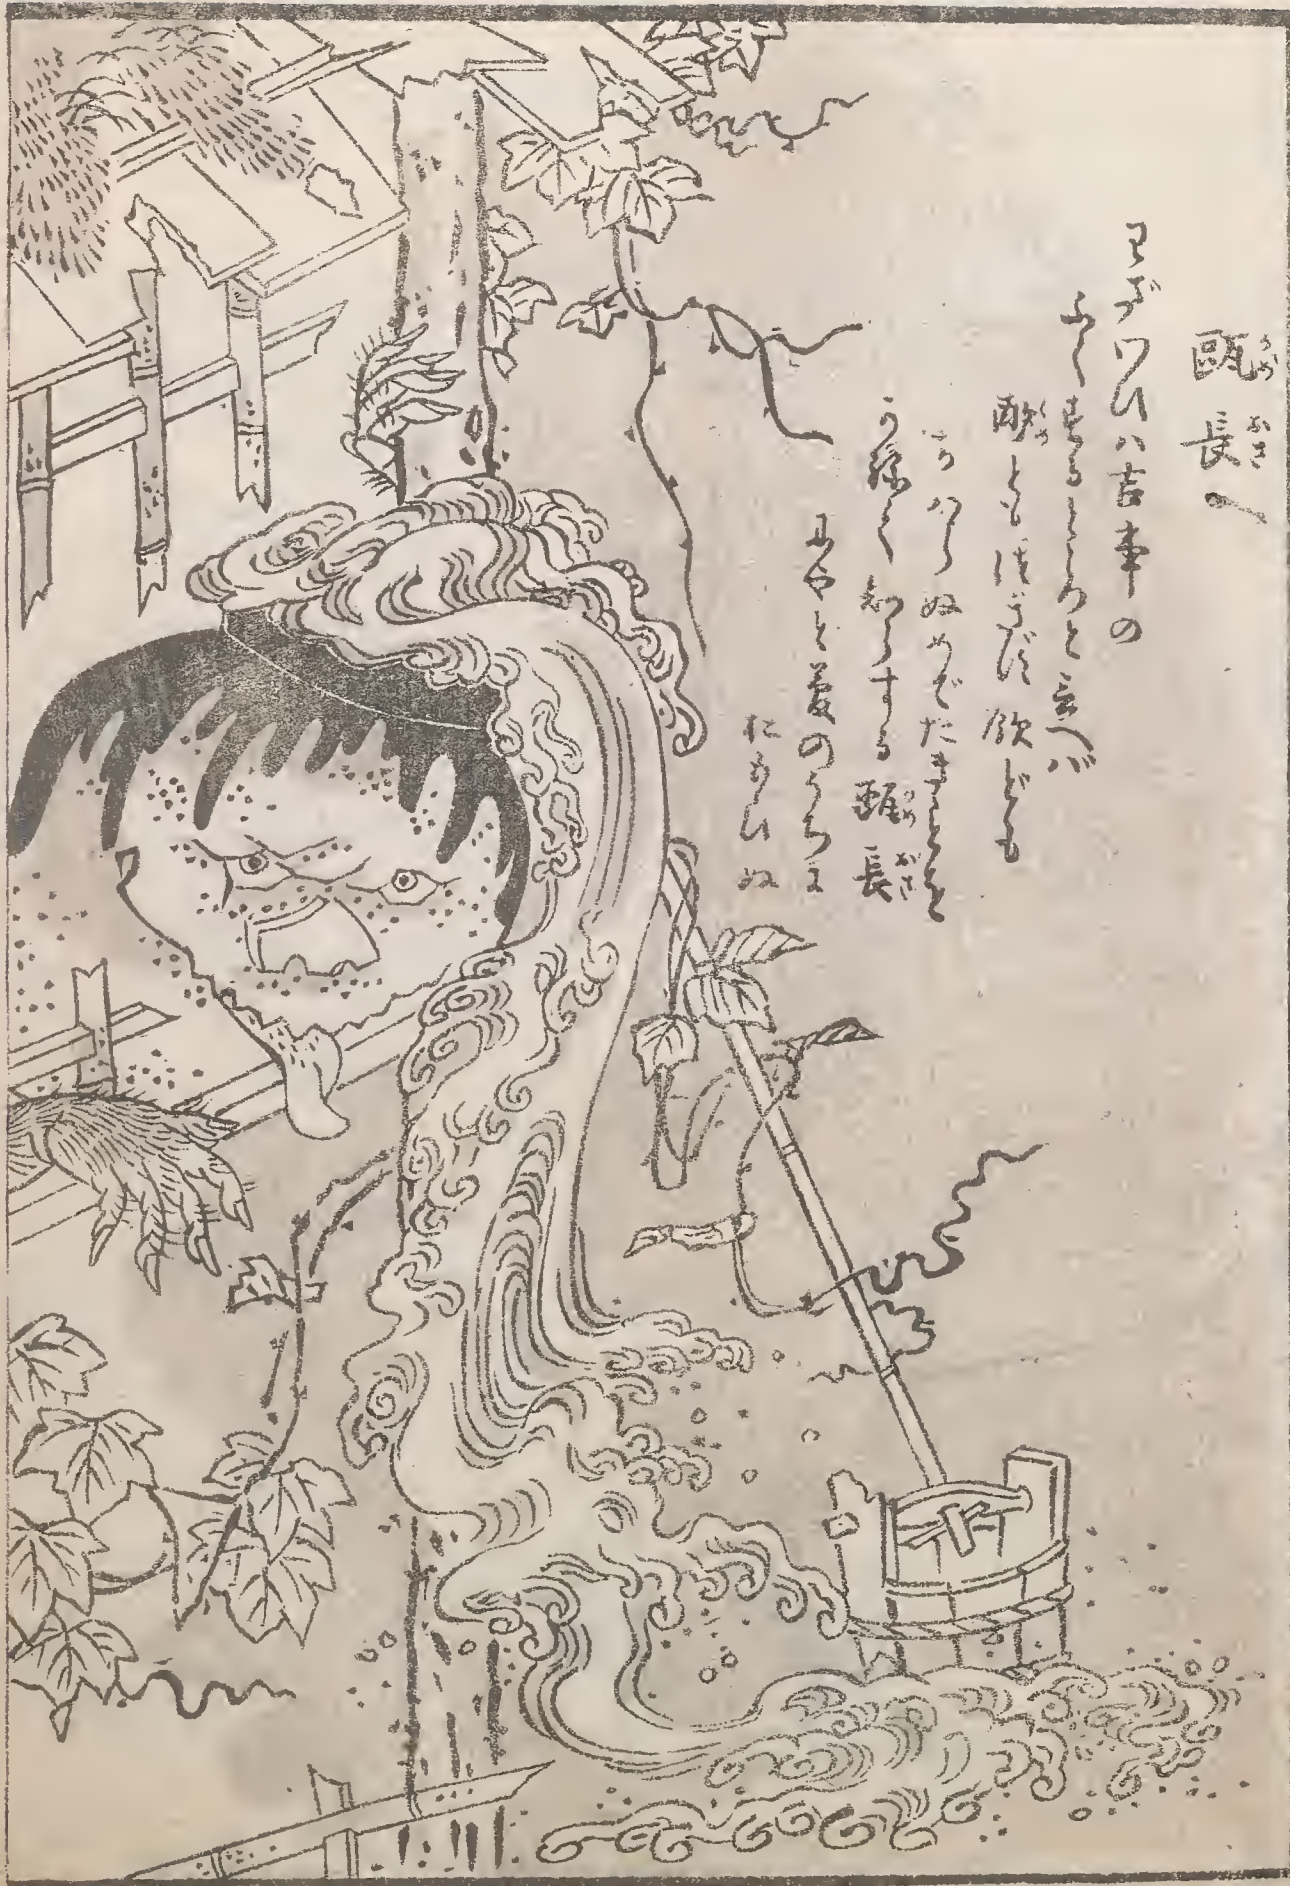 瓶長 かめおさ
わざハひハ吉事の
ふくするところと言へバ
酌どもつきず飲ども
かはらぬめでたきことを
かねて知らする瓶長 かめおさ
にやと夢のうちに
おもひぬ